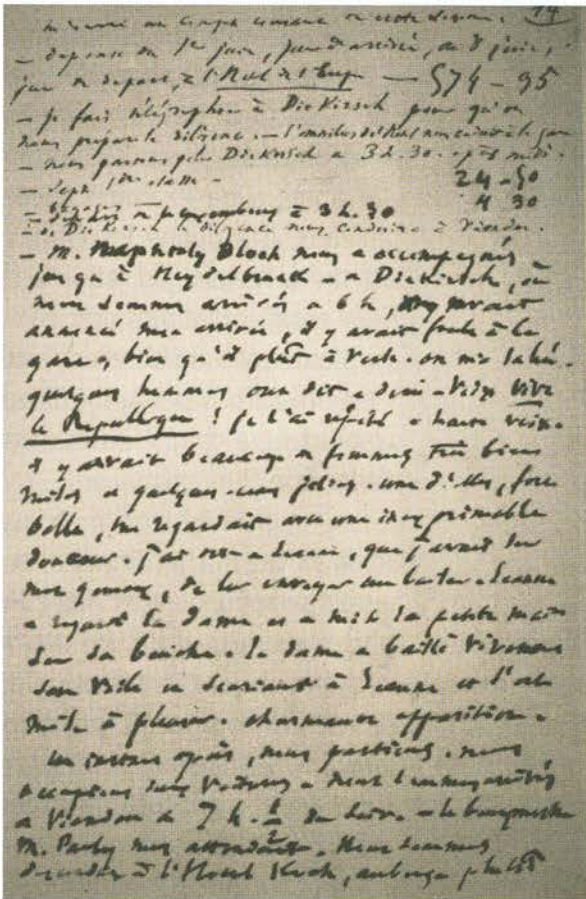 14
— dépense du 1er juin, jour d'arrivée, au 8 juin,
jour du départ, à l' — 574-95
— je fais télégraphier à Diekirsch pour qu'on
nous prépare la diligence. — l'omnibus
— nous partons pour Diekirsch à 3 h. 30. après midi.
— Sept 1re classe — 24-50
— bagages 4 30
à 3 h. 30
— de Diekirsch la diligence nous conduira à Vianden.
— M. Bloch nous a accompagnés
jusqu'à — à Diekirsch, où
nous sommes arrivés à 6 h, avait
annoncé mon arrivée, il y avait foule à la
gare, bien qu'il plût à verse. on m'a salué.
quelques hommes ont dit à demi-voix vive
la République ! je l'ai répété à haute voix.
il y avait beaucoup de femmes très bien
mises et quelques-unes jolies. une d'elles, fort
belle, me regardait avec une inexprimable
douceur. j'ai dit à Jeanne, que j'avais sur
mes genoux, de lui envoyer un baiser. Jeanne
a regardé la dame et a mis sa petite main
sur sa bouche. la dame a baissé vivement
son voile en souriant à Jeanne et s'est
mise à pleurer. charmante apparition.
un instant après, nous partions. nous
occupions deux voitures. nous sommes arrivés
à Vianden à 7 h. 1/2 du soir. — le bourgmestre
M. Pauly nous attendait. Nous sommes
descendus à l'Hôtel Koch, auberge plutôt